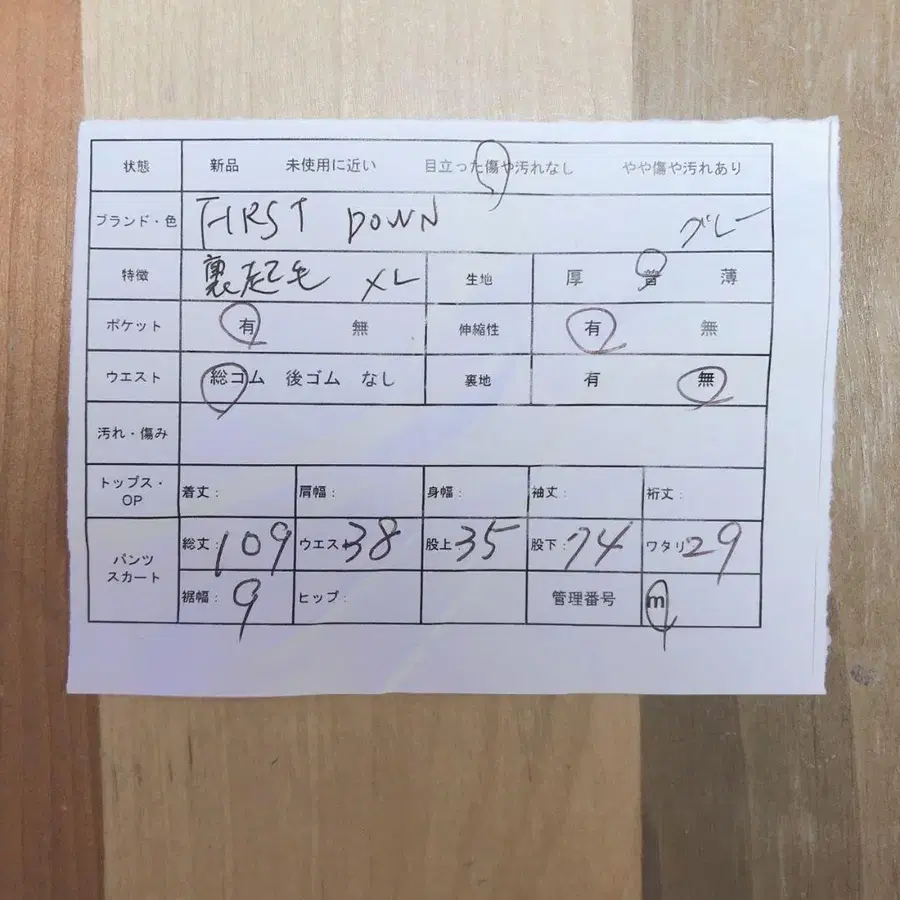 状態 新品 未使用に近い 目立った傷や汚れなし やや傷や汚れあり
ブランド・色 FIRST DOWN グレー
特徴 裏起毛 XL 生地 厚 普 薄
ポケット 有 無 伸縮性 有 無
ウエスト 総ゴム 後ゴム なし 裏地 有 無
汚れ・傷み
トップス・OP 着丈: 肩幅: 身幅: 袖丈: 裄丈:
パンツ スカート 総丈: 109 ウエスト 38 股上: 35 股下: 74 ワタリ 29
裾幅: 9 ヒップ: 管理番号 m